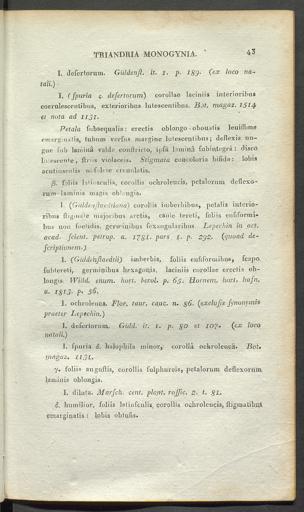 TRIANDRIA MONOGYNIA. 43
I. desertorum. Güldenst. it. 1. p. 189. (ex loco na-
tali.)
I. (spuria ς. desertorum) corollae laciniis interioribus
coerulescentibus, exterioribus lutescentibus. Bot. magaz. 1514
et nota ad 1131.
Petala subsequalia: erectis oblongo-obovatis levissime
emarginatis, tubum versus margine lutescentibus; deflexis un-
gue sub laminâ valde constricto, ipsâ laminâ subintegrâ: disco
lutescente, striis violaceis. Stigmata concoloria bifida: lobis
acutiusculis subdole crenulatis.
β. foliis latiusculis, corollis ochroleucis, petalorum deflexo-
rum laminis magis oblongis.
I. (Guldenstaedtiana) corollis imberbibus, petalis interio-
ribus stigmate majoribus arctis, caule tereti, foliis ensiformi-
bus non foetidis, germinibus sexangularibus. Lepechin in act.
acad. scient. petrop. a. 1781. pars 1. p. 292. (quoad de-
scriptionem.)
I. (Güldenstaedtii) imberbis, foliis ensiformibus, scapo
subtereti, germinibus hexagonis, laciniis corollae erectis ob-
longis. Willd. enum. hort. berol. p. 65. Hornem. hort. hafn.
a. 1813. p. 56.
I. ochroleuca. Flor. taur. cauc. n. 86. (exclusis synonymis
praeter Lepechin.)
I. desertorum. Güld. it. 1. p. 80 et 107. (ex loco
natali.)
I. spuria δ. halophila minor, corollâ ochroleucâ. Bot.
magaz. 1131.
γ. foliis angustis, corollis sulphureis, petalorum deflexorum
laminis oblongis.
I. dilata. Marsch. cent. plant. rossic. 2. t. 81.
δ. humilior, foliis latiusculis, corollis ochroleucis, stigmatibus
emarginatis: lobis obtusis.